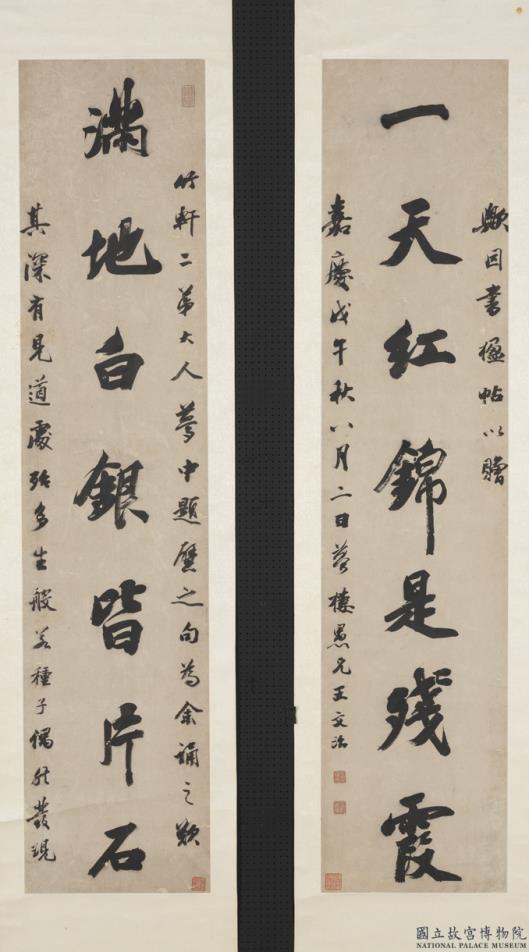 竹軒二弟大人夢中題壁之句為余誦之歎
滿地白銀皆片石
其深有見道處殆多生般若種子偶然發現
歟因書楹帖以贈
一天紅錦是殘霞
嘉慶戊午秋八月二日夢樓愚兄王文治
國立故宮博物院
NATIONAL PALACE MUSEUM